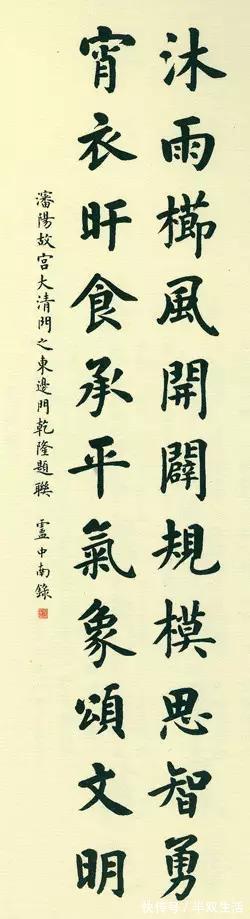 沐雨櫛風開闢規模思智勇
宵衣旰食承平氣象頌文明
瀋陽故宮大清門之東邊門乾隆題聯　盧中南錄
快传号/半双生活